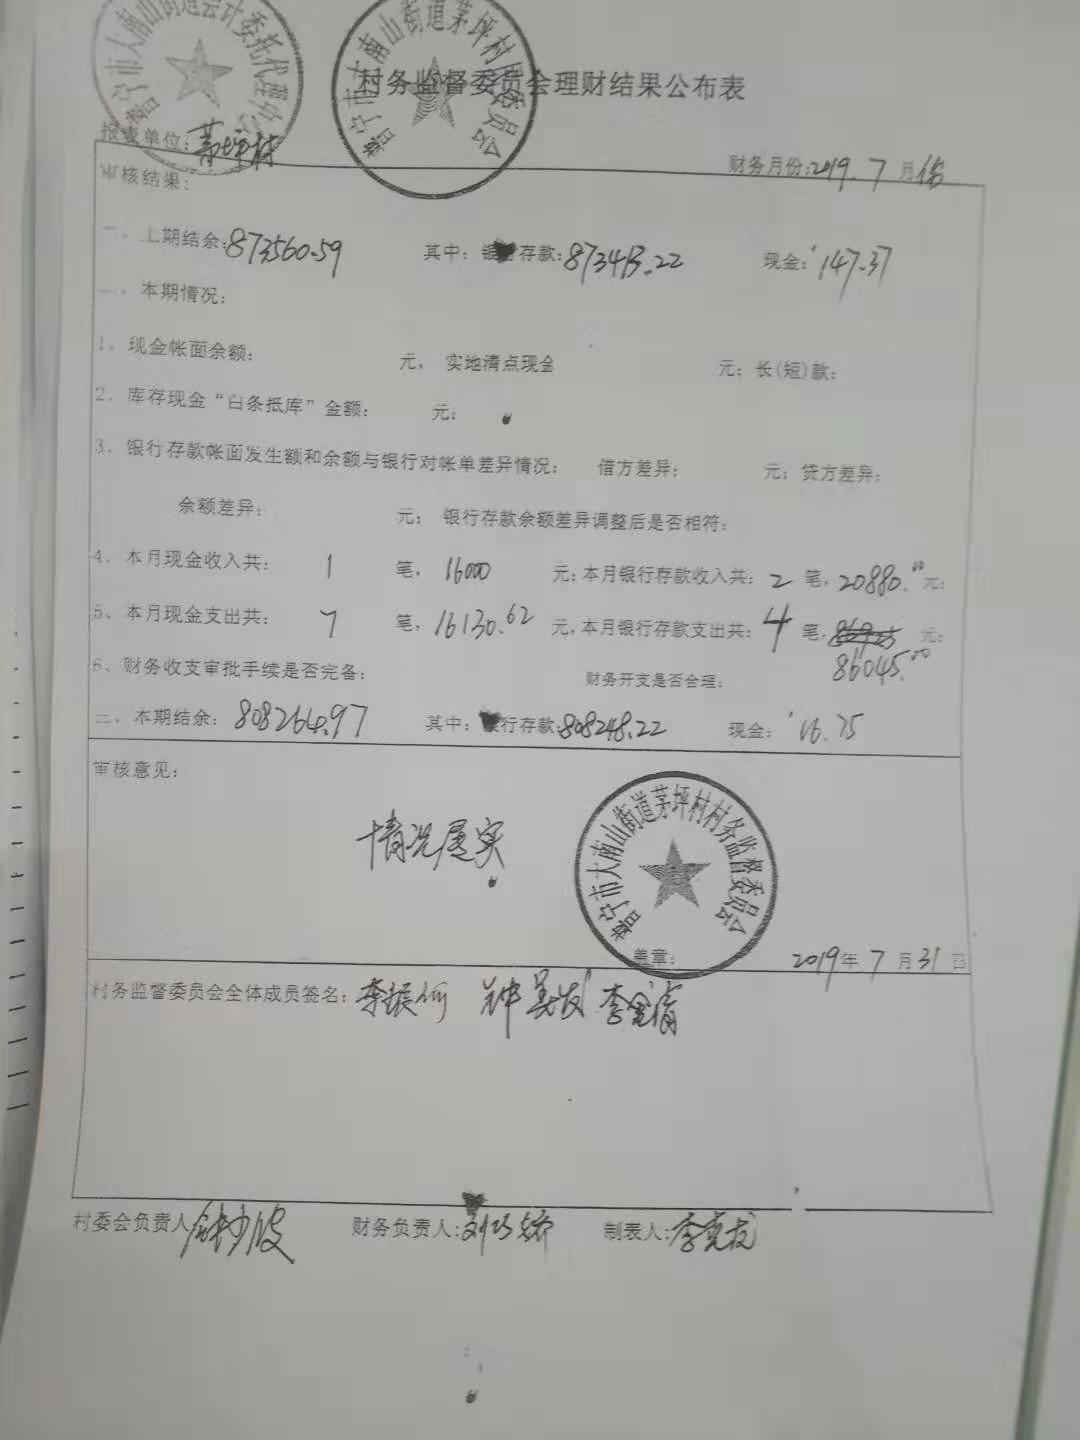 普宁市大南山街道会计委托代理
普宁市大南山街道茅坪村 委员会
村务监督委员会理财结果公布表
报表单位:茅坪村
财务月份:2019.7月份
审核结果:
一、上期结余:873560.59 其中:银行存款:873413.22 现金:147.37
二、本期情况:
1、现金帐面余额: 元, 实地清点现金 元; 长(短)款:
2、库存现金“白条抵库”金额: 元;
3、银行存款帐面发生额和余额与银行对帐单差异情况: 借方差异: 元; 贷方差异:
余额差异: 元; 银行存款余额差异调整后是否相符:
4、本月现金收入共: 1 笔, 16000 元; 本月银行存款收入共: 2 笔, 20880.00元;
5、本月现金支出共: 7 笔, 16130.62 元, 本月银行存款支出共: 4 笔, 元;
86045.00
6、财务收支审批手续是否完备: 财务开支是否合理:
三、本期结余: 808264.97 其中: 银行存款:808248.22 现金: 16.75
审核意见:
情况属实
普宁市大南山街道茅坪村村务监督委员会
盖章: 2019年7月31日
村务监督委员会全体成员签名:李振何 钟 李
村委会负责人 财务负责人:刘巧娇 制表人:李